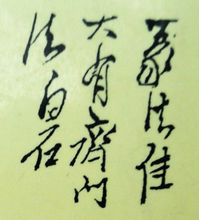 篆法佳
大有齊門
法白石